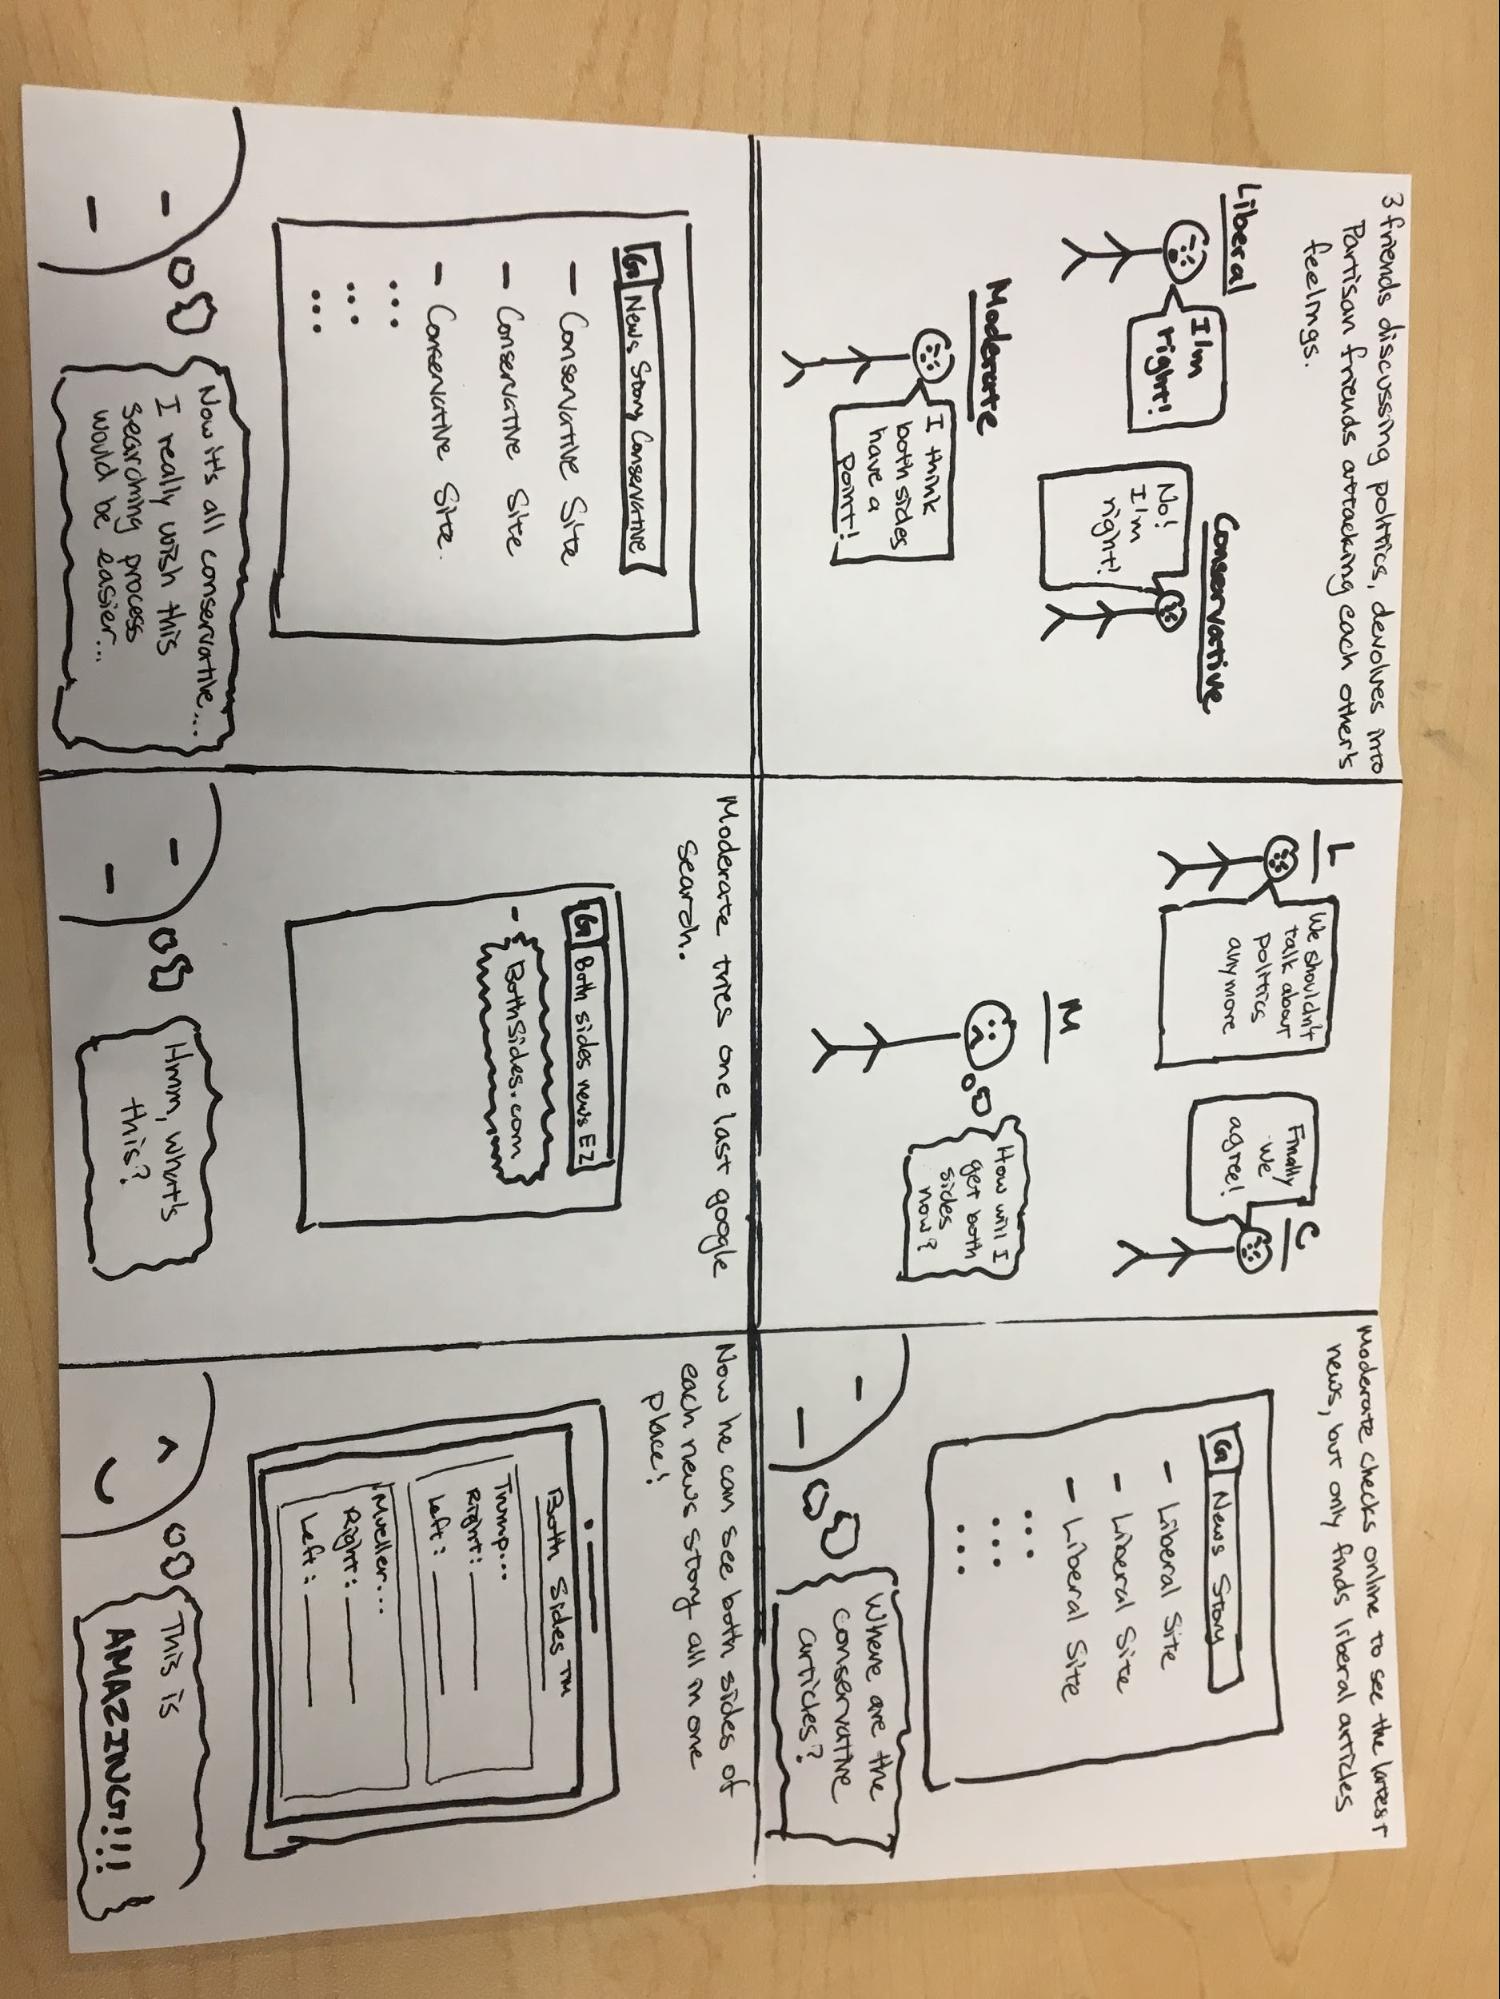 3 friends discussing politics, devolves into
Partisan friends attacking each other's
feelings.
Liberal
I'm
right!
Conservative
No!
I'm
right!
Moderate
I think
both sides
have a
point!
L
We shouldn't
talk about
politics
anymore
C
Finally
we
agree!
M
How will I
get both
sides
now?
Moderate checks online to see the latest
news, but only finds liberal articles
G News Story
- Liberal Site
- Liberal Site
- Liberal Site
...
...
...
Where are the
conservative
articles?
G News Story Conservative
- Conservative Site
- Conservative Site
- Conservative Site.
...
...
...
Now it's all conservative...
I really wish this
searching process
would be easier...
Moderate tries one last google
search.
G Both sides news EZ
- BothSides.com
Hmm, what's
this?
Now he can see both sides of
each news story all in one
place!
Both Sides™
Trump...
Right:
Left:
Mueller...
Right:
Left:
This is
AMAZING!!!